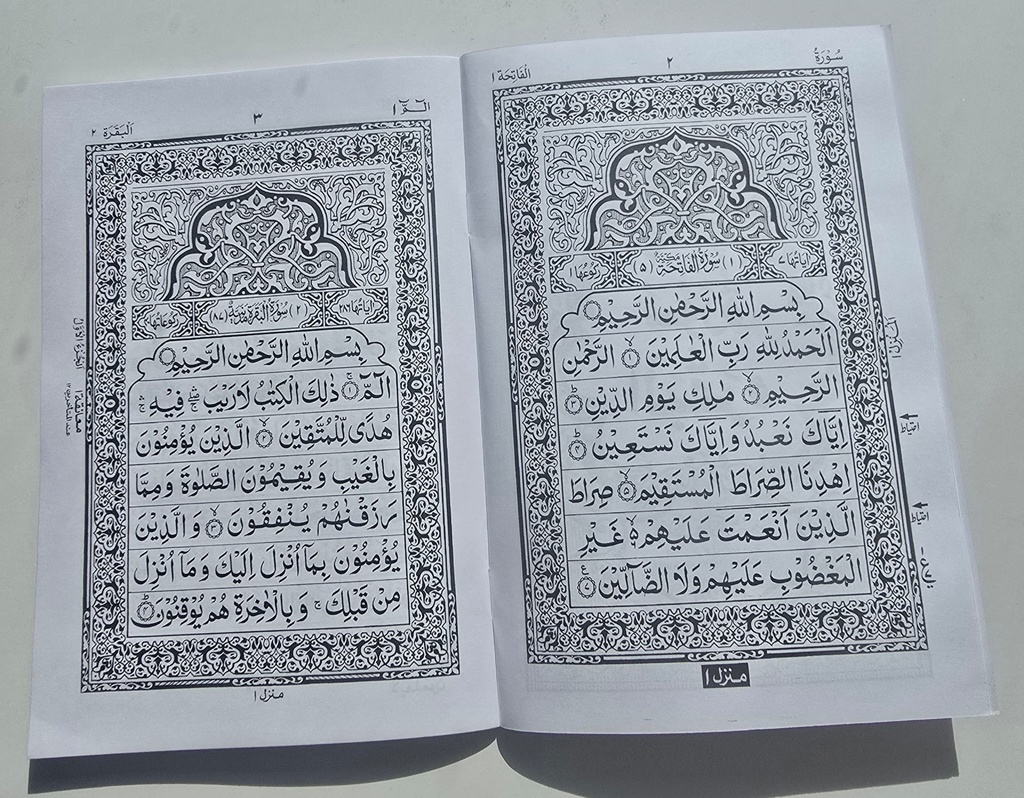 سُوْرَةُ
٢
الْفَاتِحَة ١
اٰيَاتُهَا ٧
(١) سُوْرَةُ الْفَاتِحَةِ مَكِّيَّةٌ (٥)
رُكُوْعُهَا ١
بِسْمِ اللّٰهِ الرَّحْمٰنِ الرَّحِيْمِ
اَلْحَمْدُ لِلّٰهِ رَبِّ الْعٰلَمِيْنَ ۙ﴿١﴾ الرَّحْمٰنِ
الرَّحِيْمِ ۙ﴿٢﴾ مٰلِكِ يَوْمِ الدِّيْنِ ؕ﴿٣﴾
اِيَّاكَ نَعْبُدُ وَاِيَّاكَ نَسْتَعِيْنُ ؕ﴿٤﴾
اِهْدِنَا الصِّرَاطَ الْمُسْتَقِيْمَ ۙ﴿٥﴾ صِرَاطَ
الَّذِيْنَ اَنْعَمْتَ عَلَيْهِمْ ۙ۬﴿٦﴾ غَيْرِ
الْمَغْضُوْبِ عَلَيْهِمْ وَلَا الضَّآلِّيْنَ ﴿٧﴾
اَلْمَنْزِلُ ١
احتیاط
احتیاط
منزل ١
الٓمّٓ ١
٣
الْبَقَرَة ٢
اٰيَاتُهَا ٢٨٦
(٢) سُوْرَةُ الْبَقَرَةِ مَدَنِيَّةٌ (٨٧)
رُكُوْعَاتُهَا
بِسْمِ اللّٰهِ الرَّحْمٰنِ الرَّحِيْمِ
الٓمّٓ ۚ﴿١﴾ ذٰلِكَ الْكِتٰبُ لَا رَيْبَ ۛۖۚ فِيْهِ ۛۚ
هُدًى لِّلْمُتَّقِيْنَ ۙ﴿٢﴾ الَّذِيْنَ يُؤْمِنُوْنَ
بِالْغَيْبِ وَيُقِيْمُوْنَ الصَّلٰوةَ وَمِمَّا
رَزَقْنٰهُمْ يُنْفِقُوْنَ ۙ﴿٣﴾ وَالَّذِيْنَ
يُؤْمِنُوْنَ بِمَاۤ اُنْزِلَ اِلَيْكَ وَمَاۤ اُنْزِلَ
مِنْ قَبْلِكَ ۚ وَبِالْاٰخِرَةِ هُمْ يُوْقِنُوْنَ ؕ﴿٤﴾
الجزء الاول
معانقة ١
منزل ١